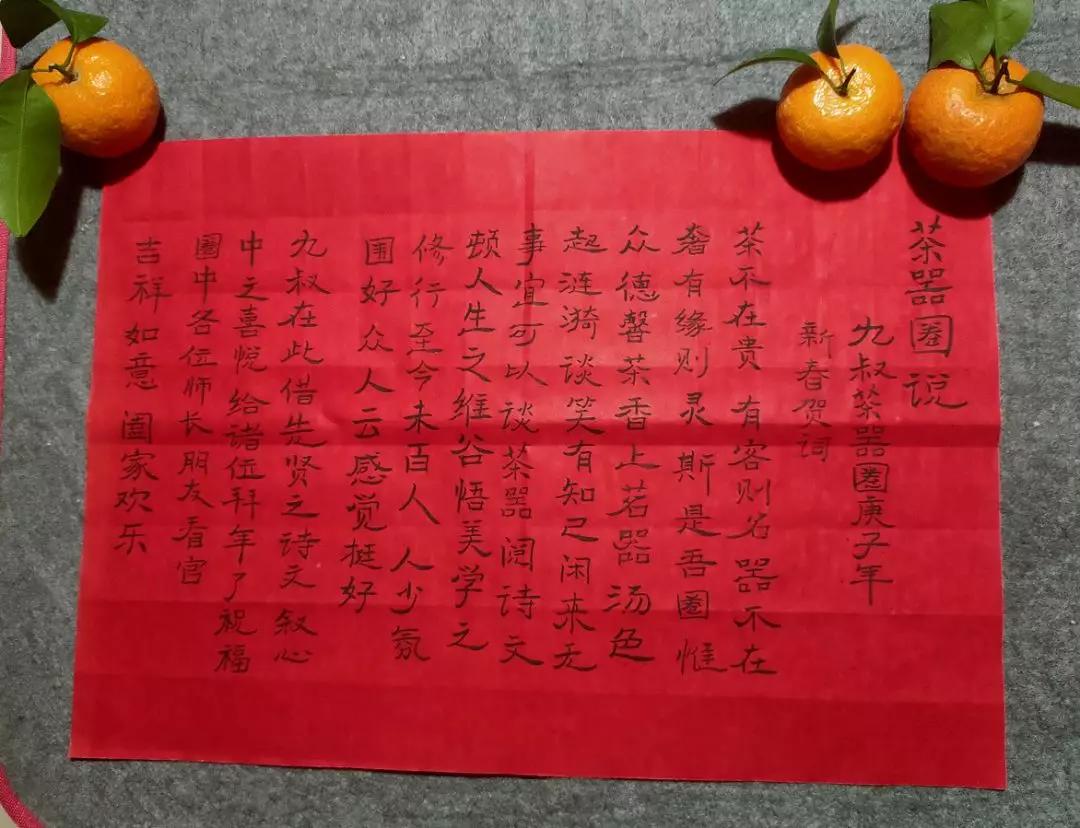 茶器圈说
九叔茶器圈庚子年
新春贺词
茶不在贵 有客则名 器不在
奢有缘则灵 斯是吾圈 惟
众德馨茶香上茗器汤色
起涟漪谈笑有知己闲来无
事宜可以谈茶器阅诗文
顿人生之维谷悟美学之
修行至今未百人 人少氛
围好众人云感觉挺好
九叔在此借先贤之诗文叙心
中之喜悦给诸位拜年了祝福
圈中各位师长朋友看官
吉祥如意 阖家欢乐